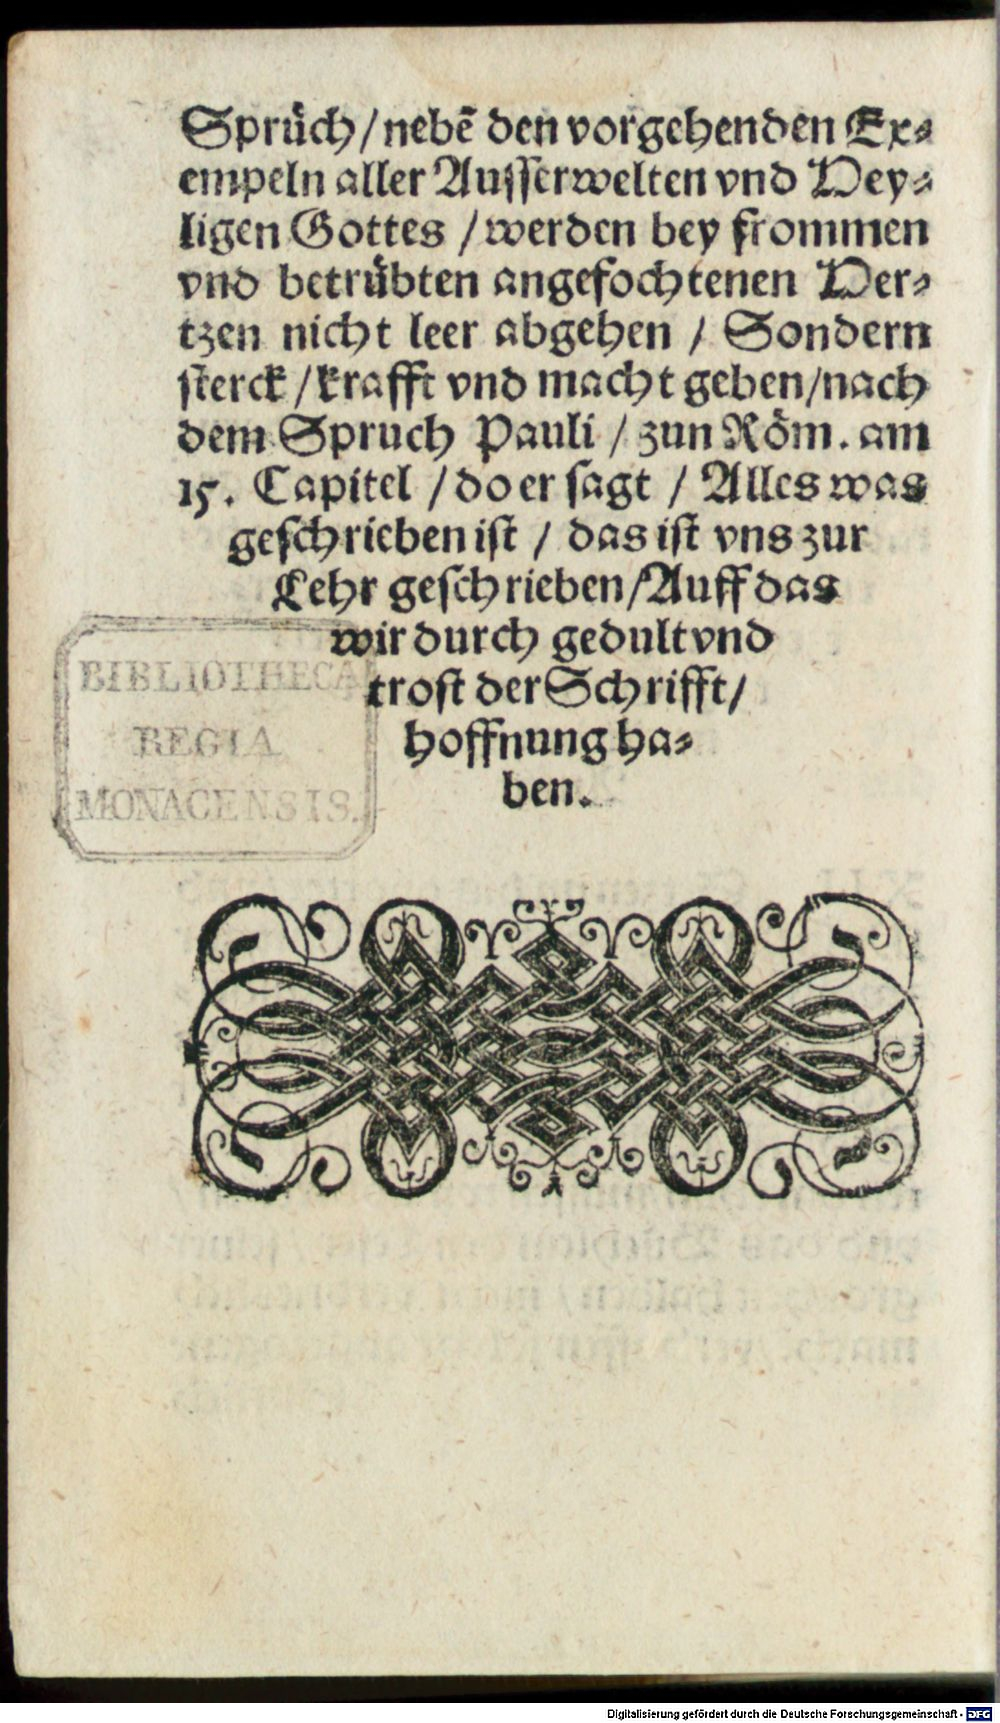 Sprüch / nebē den vorgehenden Ex⸗
empeln aller Ausserwelten vnd Hey⸗
ligen Gottes / werden bey frommen
vnd betrübten angefochtenen Her⸗
tzen nicht leer abgehen / Sondern
sterck / krafft vnd macht geben / nach
dem Spruch Pauli / zun Röm. am
15. Capitel / do er sagt / Alles was
geschrieben ist / das ist vns zur
Lehr geschrieben / Auff das
wir durch gedult vnd
trost der Schrifft /
hoffnung ha⸗
ben.
BIBLIOTHECA
REGIA
MONACENSIS.
Digitalisierung gefördert durch die Deutsche Forschungsgemeinschaft - DFG